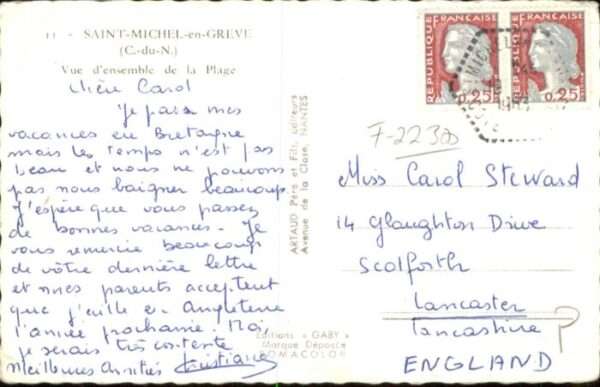 11 - SAINT-MICHEL-en-GREVE
(C.-du-N.)
Vue d'ensemble de la Plage
Chère Carol
Je passe mes
vacances en Bretagne
mais les temps n'est pas
beau et nous ne pouvons
pas nous baigner beaucoup
J'espère que vous passez
de bonnes vacances. Je
vous remercie beaucoup
de vôtre dernière lettre
et mes parents acceptent
que j'aille en Angleterre
l'année prochaine. Moi,
je serais très contente
Meilleures Amitiés Christiane
ARTAUD Père et Fils, éditeurs
Avenue de la Close, NANTES
Editions « GABY »
Marque Déposée
SOMACOLOR
REPUBLIQUE FRANÇAISE
0,25
REPUBLIQUE FRANÇAISE
0,25
F-2230
Miss Carol Steward
14 Glaughton Drive
Scolforth
Lancaster
Lancashire
ENGLAND